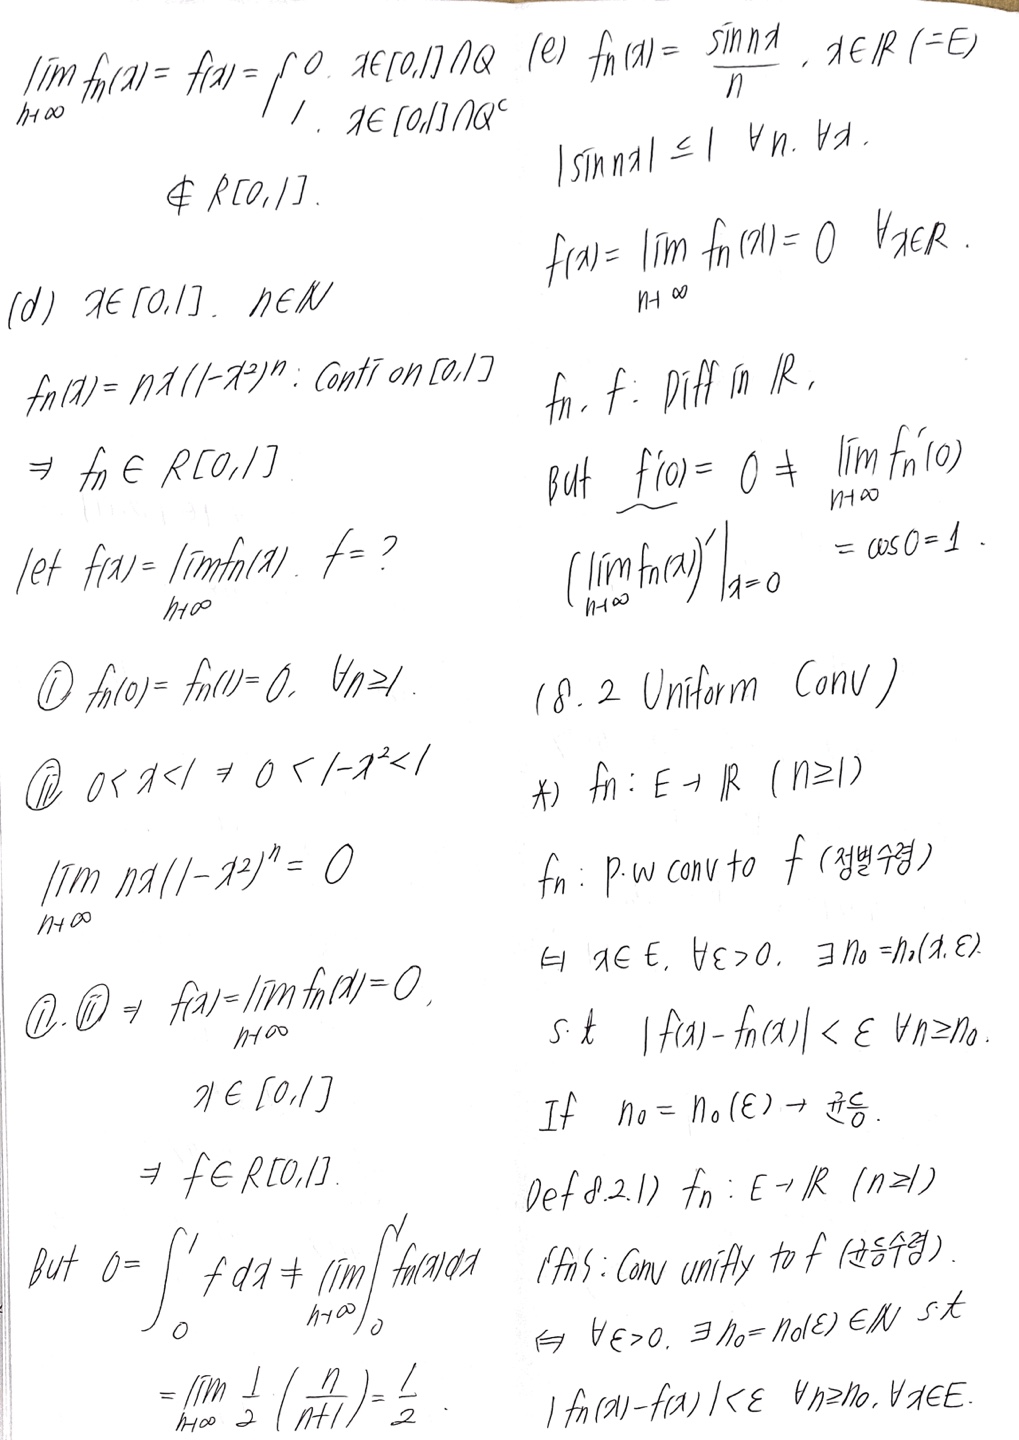 lim_{n→∞} fn(x) = f(x) = { 0. x∈[0,1]∩Q
1. x∈[0,1]∩Q^c
∉ R[0,1].
(d) x∈[0,1]. n∈ℕ
fn(x) = nx(1-x²)^n : Conti on [0,1]
⇒ fn ∈ R[0,1]
let f(x) = lim_{n→∞} fn(x). f = ?
ⓘ fn(0) = fn(1) = 0, ∀n≥1.
ⓘⓘ 0<x<1 ⇒ 0<1-x²<1
lim_{n→∞} nx(1-x²)^n = 0
ⓘ.ⓘⓘ ⇒ f(x) = lim_{n→∞} fn(x) = 0,
x∈[0,1]
⇒ f∈R[0,1].
But 0 = ∫_0^1 f dx ≠ lim_{n→∞} ∫_0^1 fn(x)dx
= lim_{n→∞} 1/2 (n/(n+1)) = 1/2.
(e) fn(x) = sin nx / n, x∈ℝ (=E)
|sin nx| ≤ 1 ∀n. ∀x.
f(x) = lim_{n→∞} fn(x) = 0 ∀x∈ℝ.
fn, f : Diff in ℝ,
But f'(0) = 0 ≠ lim_{n→∞} fn'(0)
(lim_{n→∞} fn(x))'|_{x=0} = cos0 = 1.
(8.2 Uniform Conv)
*) fn : E → ℝ (n≥1)
fn : p.w conv to f (점별수렴)
⇔ x∈E, ∀ε>0, ∃n₀ = n₀(x,ε).
s.t |f(x) - fn(x)| < ε ∀n≥n₀.
If n₀ = n₀(ε) → 균등.
Def 8.2.1) fn : E → ℝ (n≥1)
{fn} : Conv unifly to f (균등수렴).
⇔ ∀ε>0, ∃n₀ = n₀(ε) ∈ℕ s.t
|fn(x) - f(x)| < ε ∀n≥n₀, ∀x∈E.